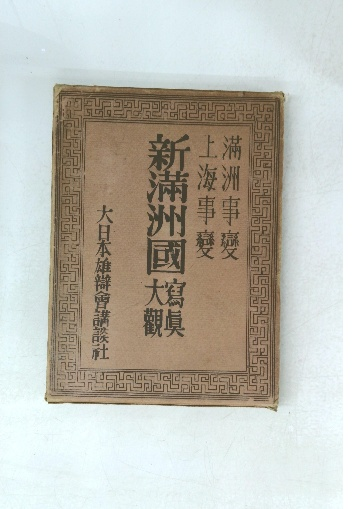 満洲事變
上海事變
新満洲國寫眞大觀
大日本雄辯會講談社